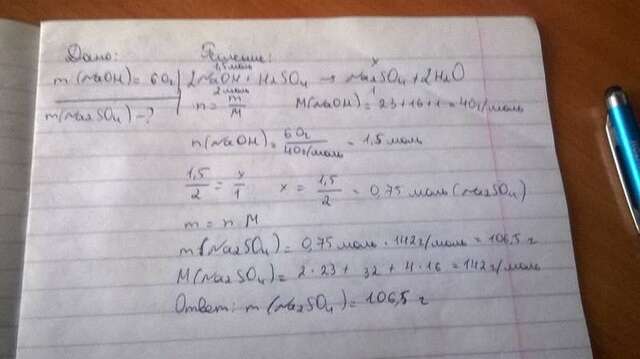 Дано:
Решение:
1,5 моль
x
m(NaOH) = 60г
2NaOH + H2SO4 → Na2SO4 + 2H2O
2 моль
1
m(Na2SO4) - ?
n = m/M
M(NaOH) = 23+16+1 = 40г/моль
n(NaOH) = 60г/40г/моль = 1,5 моль
1,5/2 = x/1 x = 1,5/2 = 0,75 моль (Na2SO4)
m = n M
m(Na2SO4) = 0,75 моль · 142г/моль = 106,5 г
M(Na2SO4) = 2·23 + 32 + 4·16 = 142г/моль
Ответ: m(Na2SO4) = 106,5 г